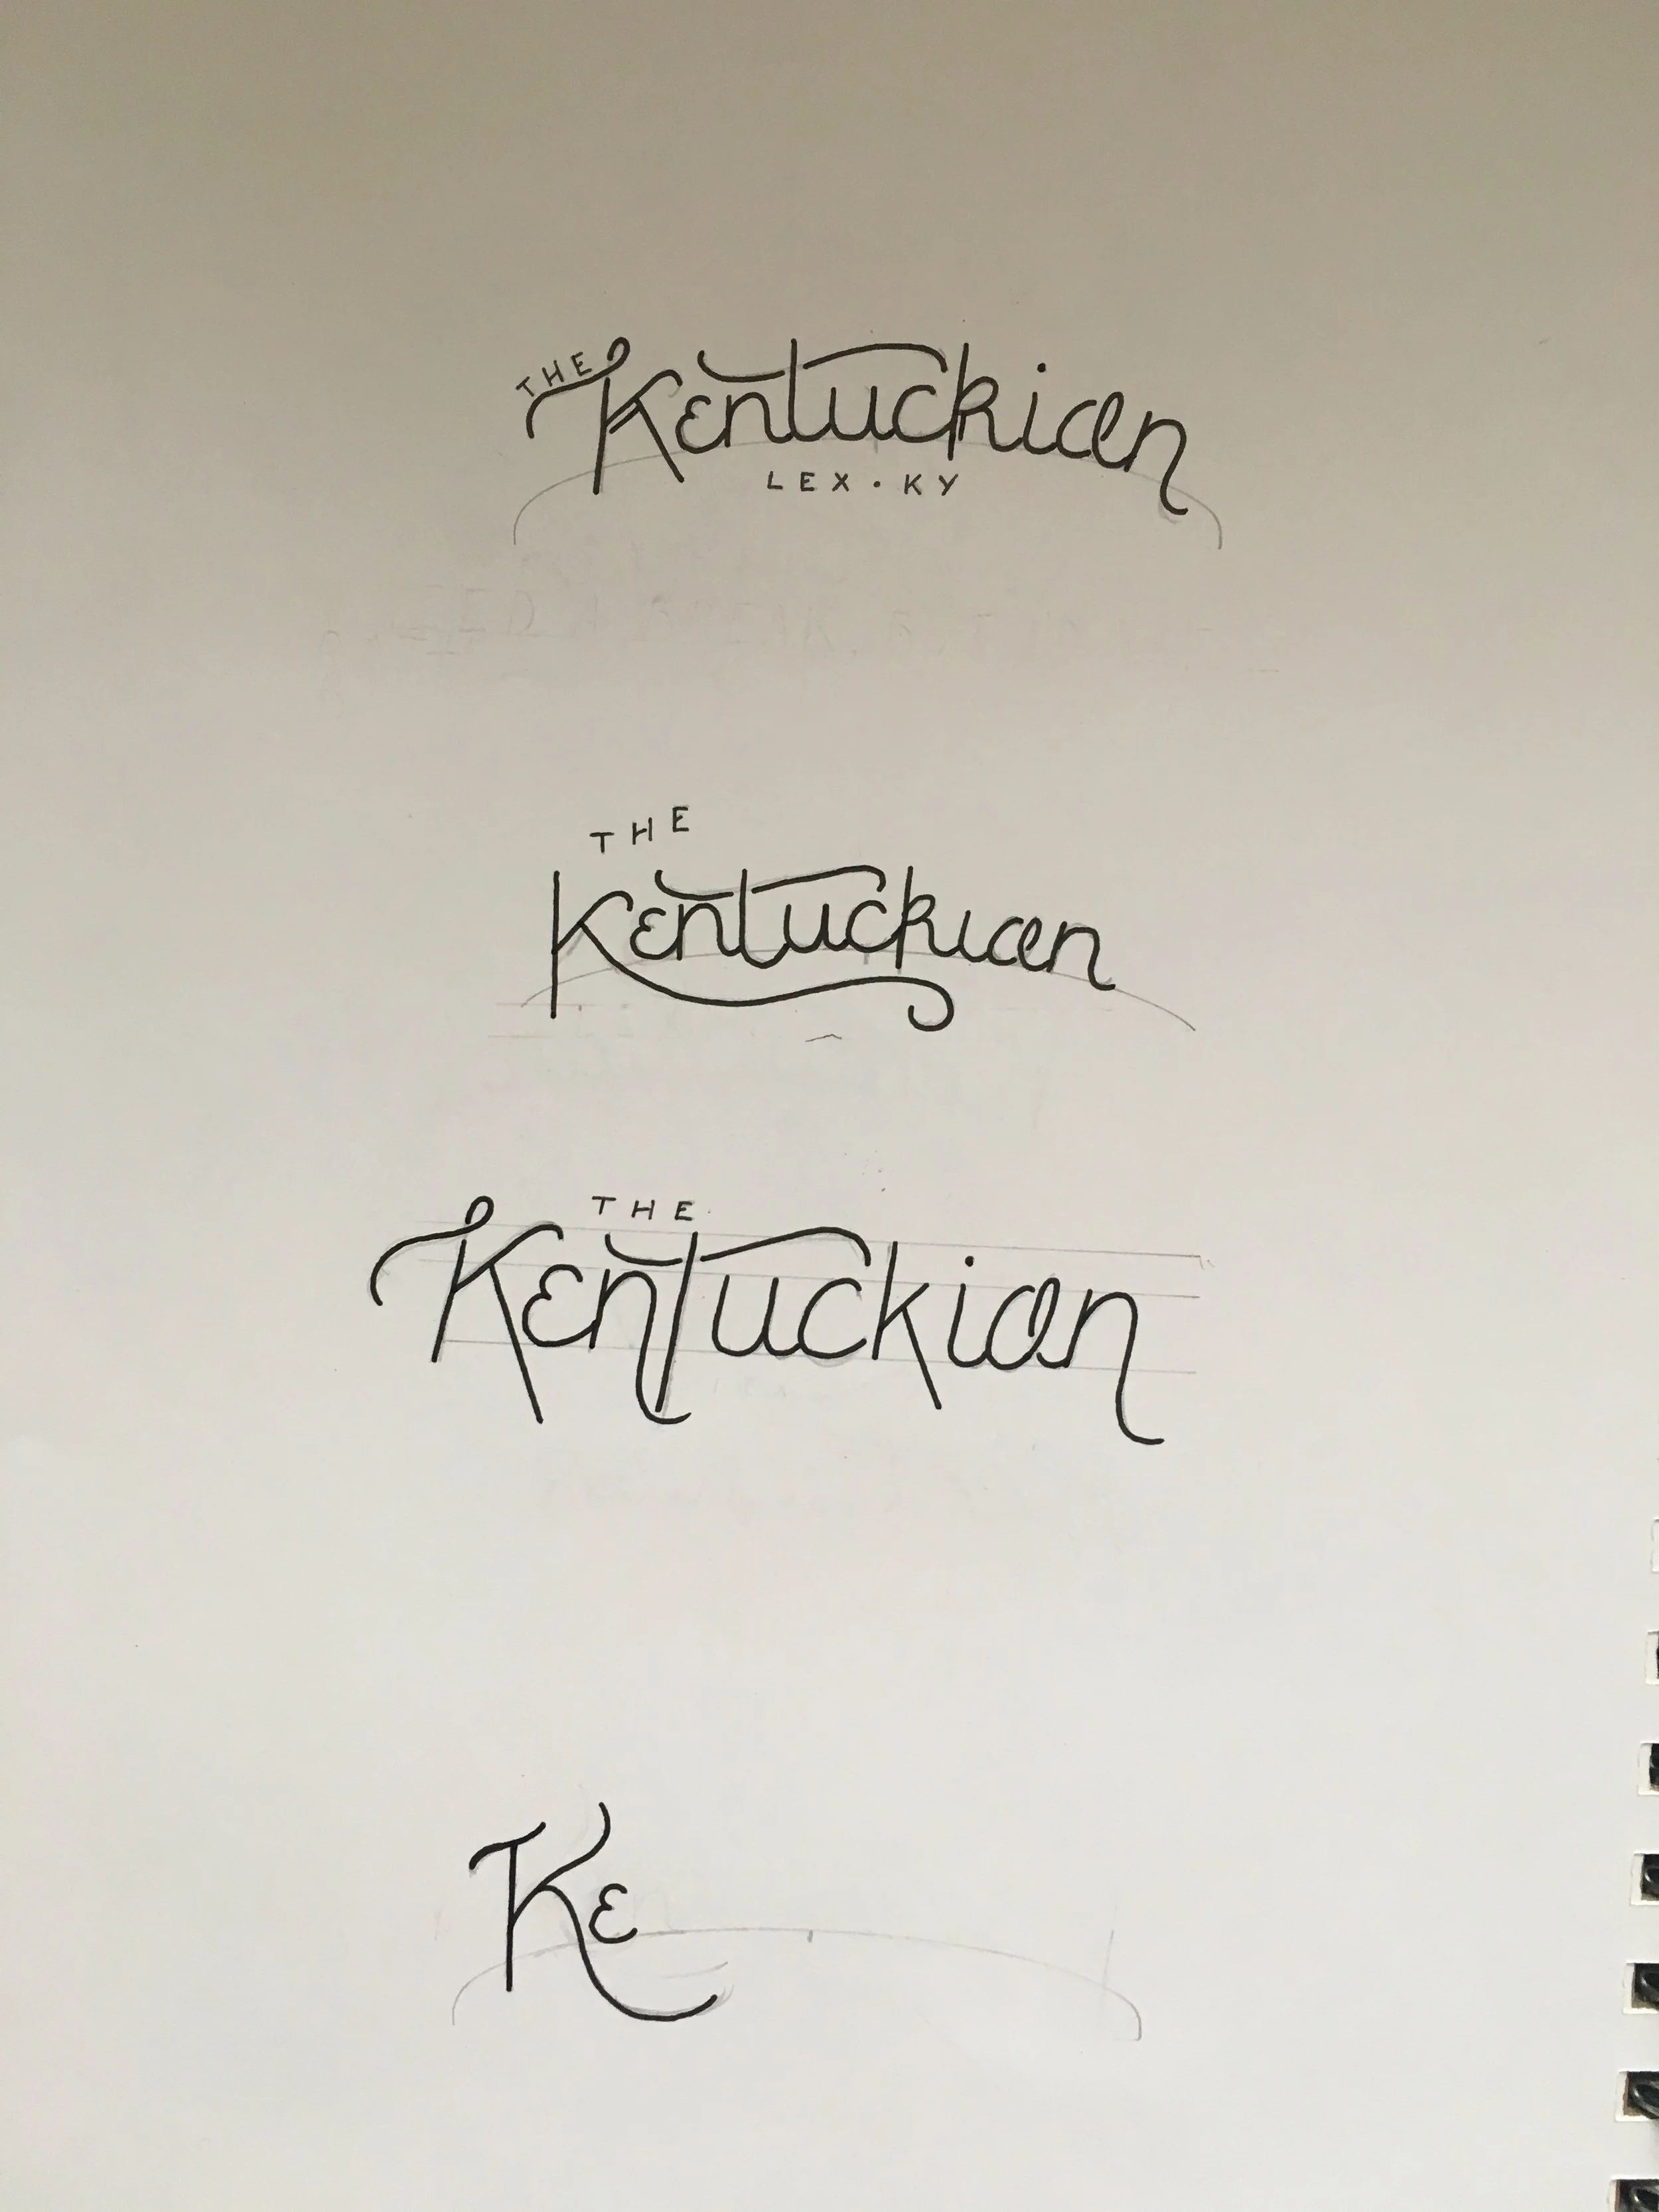 THE
Kentuckian
LEX · KY
THE
Kentuckian
THE
Kentuckian
Ke